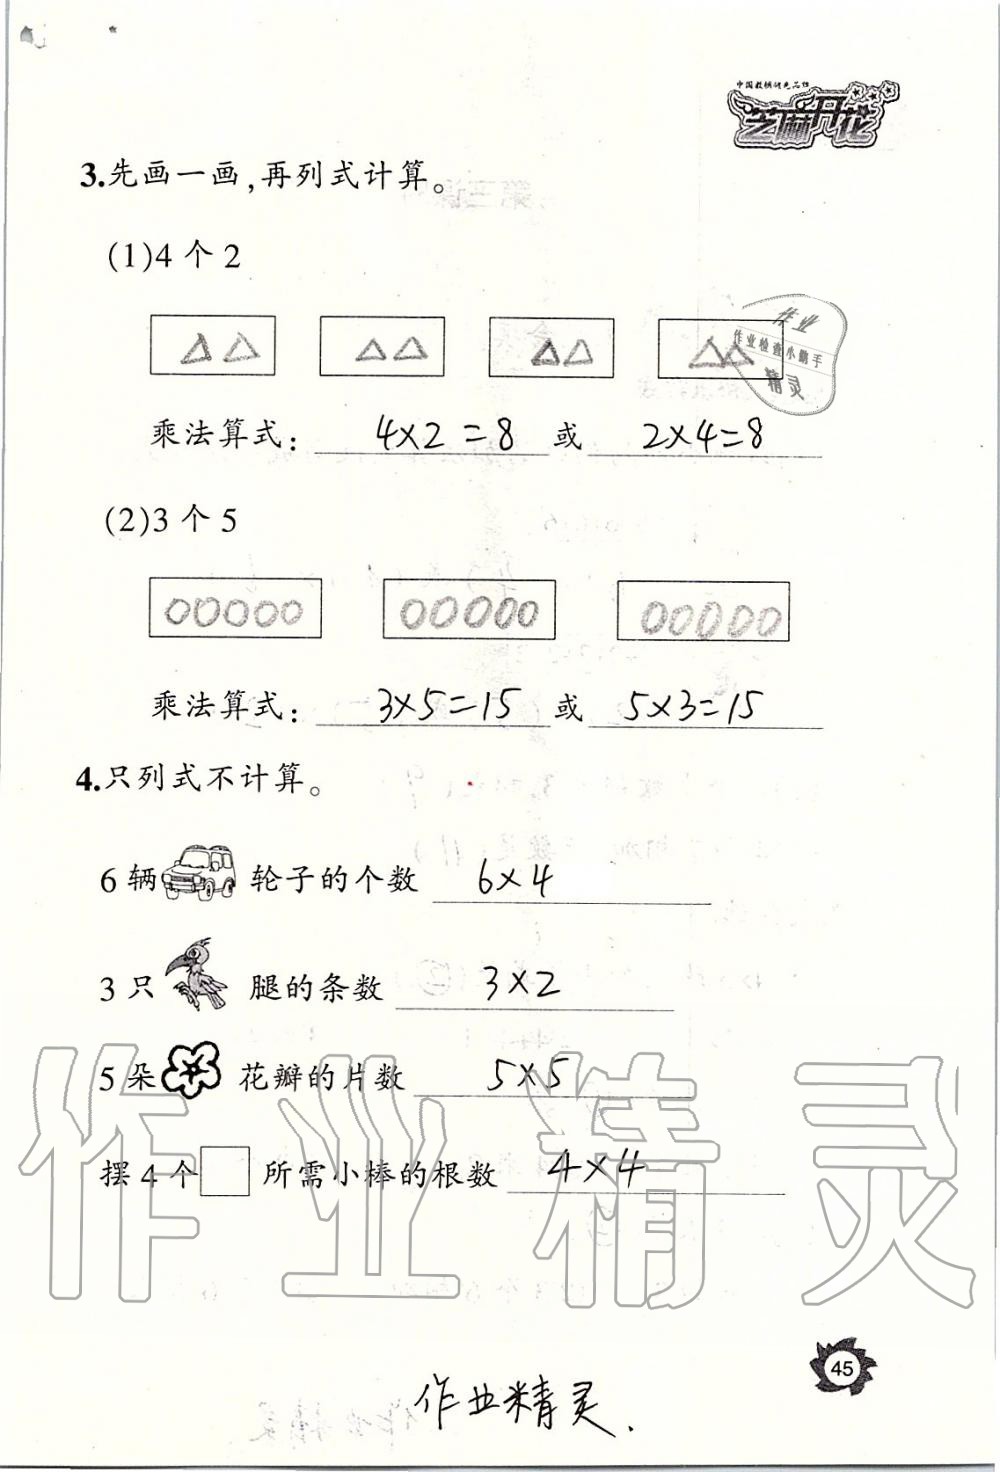 中国教辅领先品牌
芝麻开花
3.先画一画,再列式计算。
(1)4个2
作业
作业检查小助手
精灵
乘法算式: 4×2=8 或 2×4=8
(2)3个5
乘法算式: 3×5=15 或 5×3=15
4.只列式不计算。
6辆 轮子的个数 6×4
3只 腿的条数 3×2
5朵 花瓣的片数 5×5
摆4个 所需小棒的根数 4×4
作业精灵
45
作业精灵.